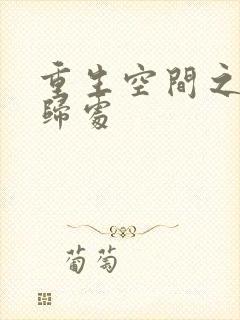 重生空間之
歸處
葡萄